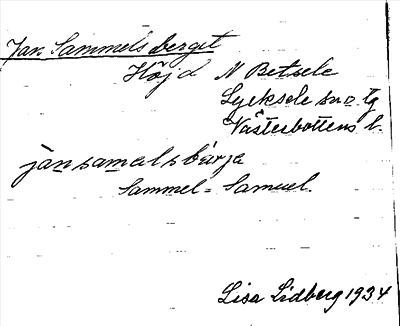 Jan Sammelsberget
Höjd N Betsele
Lycksele sn o tg
Västerbottens l.
jansamelsbärja
Sammel = Samuel.
Lisa Lidberg 1934